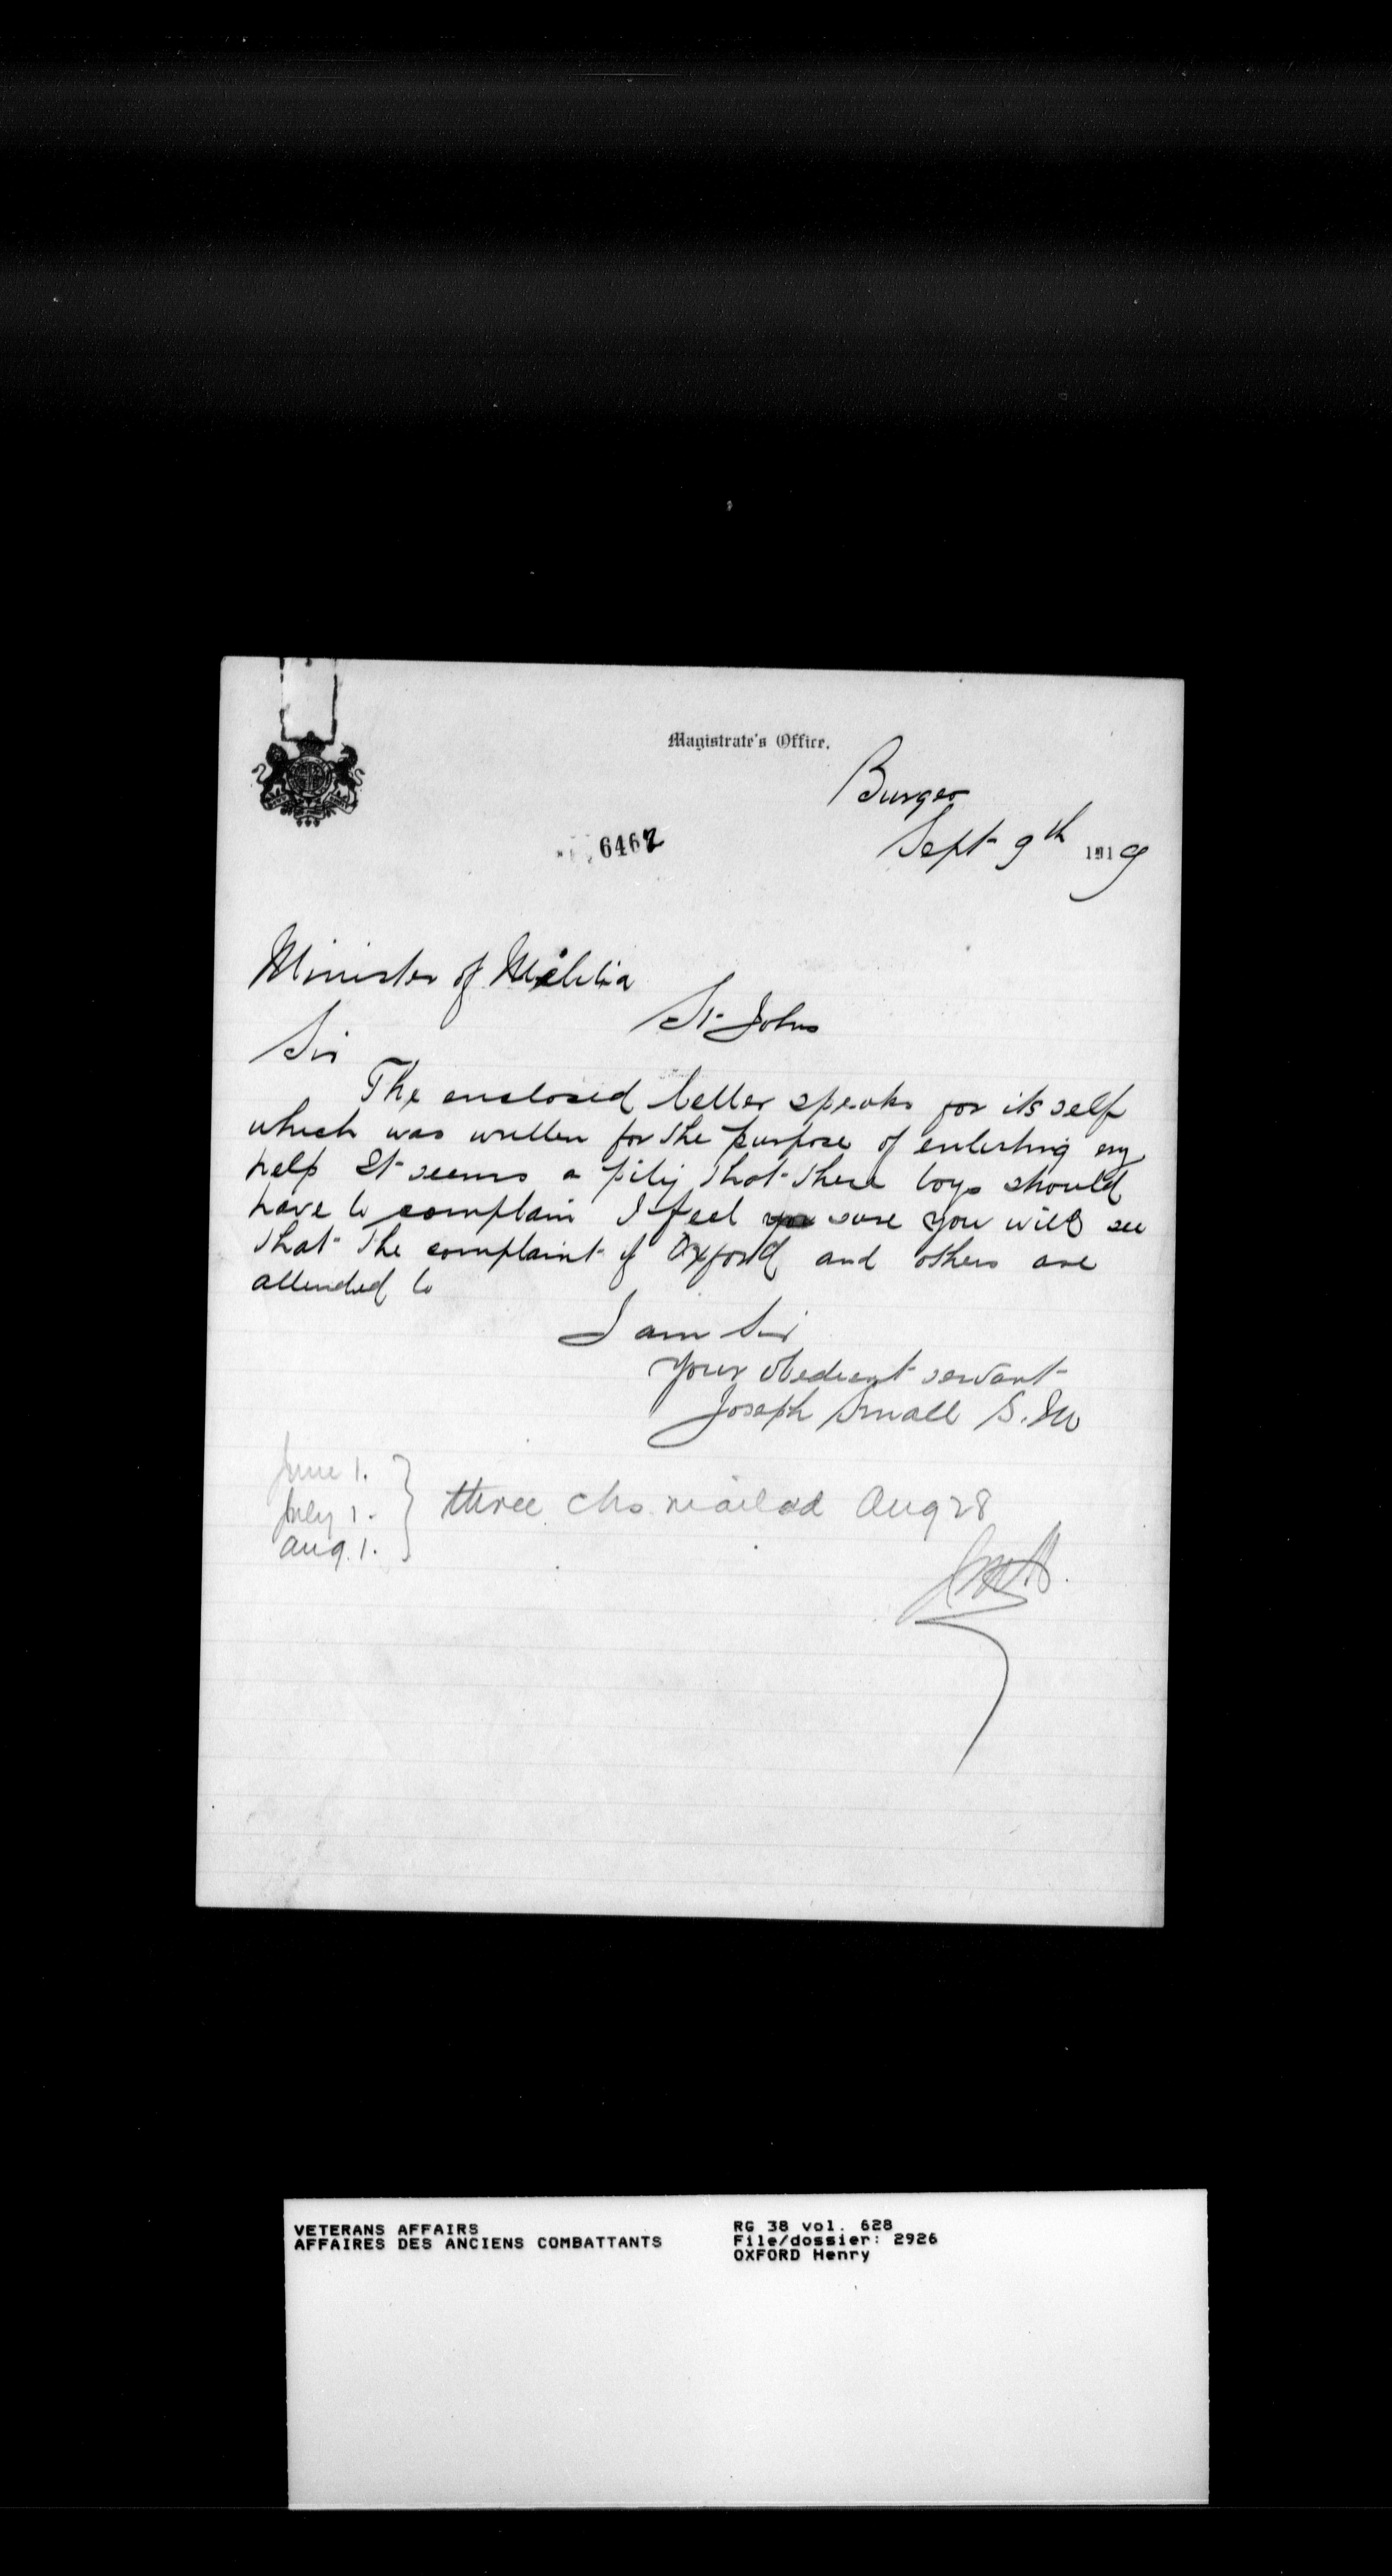 Magistrate's Office.
Burgeo
Sept 9th 1919
6467
Minister of Militia
St Johns
Sir
The enclosed letter speaks for its self
which was written for the purpose of enlisting my
help It seems a pity that these boys should
have to complain I feel you sure you will see
that the complaint of Oxford and others are
attended to
I am Sir
Your obedient servant
Joseph Small S.M
June 1.
July 1.
Aug. 1.
three chs mailed Aug 28
VETERANS AFFAIRS
AFFAIRES DES ANCIENS COMBATTANTS
RG 38 vol. 628
File/dossier: 2926
OXFORD Henry